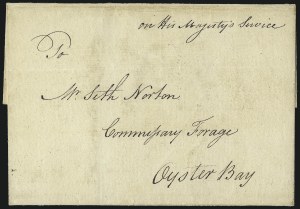 on His Majesty's Service
To
Mr Seth Norton
Commissary Forage
Oyster Bay